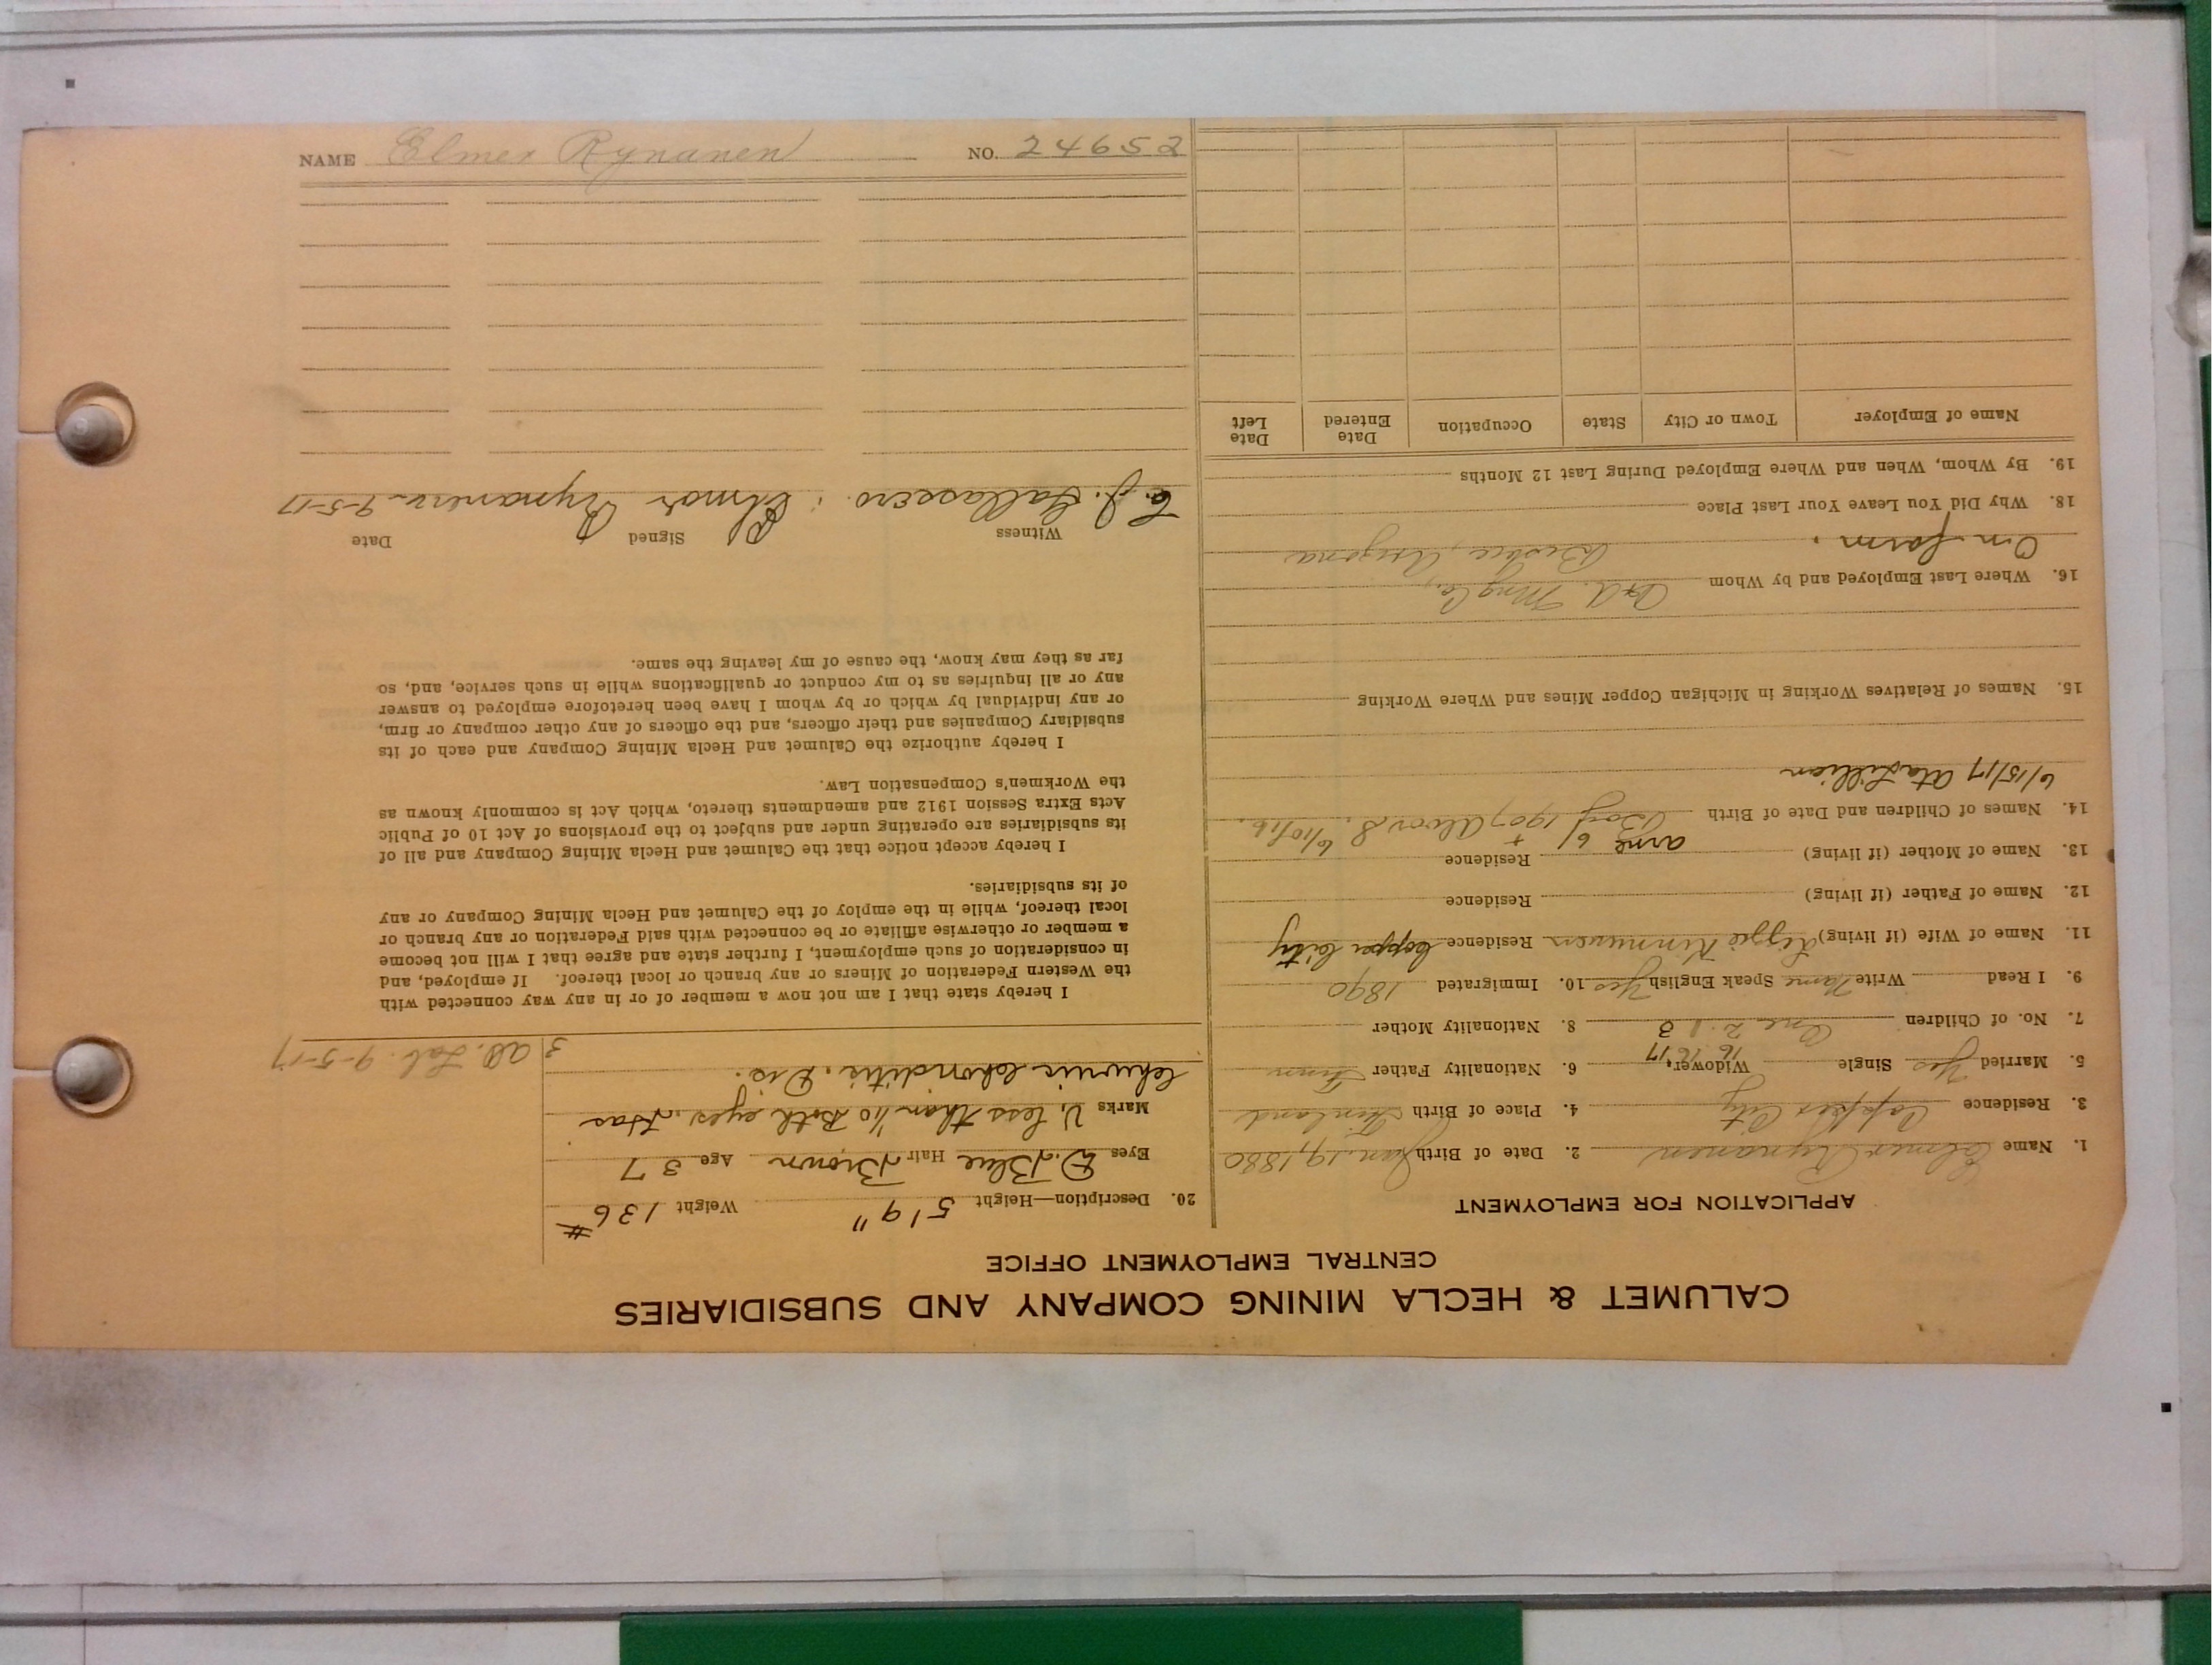 CALUMET & HECLA MINING COMPANY AND SUBSIDIARIES
CENTRAL EMPLOYMENT OFFICE
APPLICATION FOR EMPLOYMENT
1. Name Elmer Rynanen 2. Date of Birth Jan. 19, 1880
3. Residence Copper City 4. Place of Birth Finland
5. Married Yes Single Widower 6. Nationality Father Finn
16 16 17
7. No. of Children One 2 3 8. Nationality Mother
9. I Read Write Name Speak English Yes 10. Immigrated 1890
11. Name of Wife (if living) Lizzie Kinnunen Residence Copper City
12. Name of Father (if living) Residence
13. Name of Mother (if living) Residence
Arne 6/
14. Names of Children and Date of Birth Boy 1907 + 6/10/16.
6/15/17 Lillian
15. Names of Relatives Working in Michigan Copper Mines and Where Working
16. Where Last Employed and by Whom C+A. Mng Co.,
On farm. Bisbee, Arizona
18. Why Did You Leave Your Last Place
19. By Whom, When and Where Employed During Last 12 Months
Name of Employer Town or City State Occupation Date Entered Date Left
20. Description—Height 5'9" Weight 136#
Eyes D. Blue Hair Brown Age 37
Marks V. less than 1/10 Both eyes. Has
Chronic Dis.
3 Lab. 9-5-17
I hereby state that I am not now a member of or in any way connected with
the Western Federation of Miners or any branch or local thereof. If employed, and
in consideration of such employment, I further state and agree that I will not become
a member or otherwise affiliate or be connected with said Federation or any branch or
local thereof, while in the employ of the Calumet and Hecla Mining Company or any
of its subsidiaries.
I hereby accept notice that the Calumet and Hecla Mining Company and all of
its subsidiaries are operating under and subject to the provisions of Act 10 of Public
Acts Extra Session 1912 and amendments thereto, which Act is commonly known as
the Workmen's Compensation Law.
I hereby authorize the Calumet and Hecla Mining Company and each of its
subsidiary Companies and their officers, and the officers of any other company or firm,
or any individual by which or by whom I have been heretofore employed to answer
any or all inquiries as to my conduct or qualifications while in such service, and, so
far as they may know, the cause of my leaving the same.
Witness Signed Date
Elmer Rynanen 9-5-17
NAME Elmer Rynanen NO. 24652